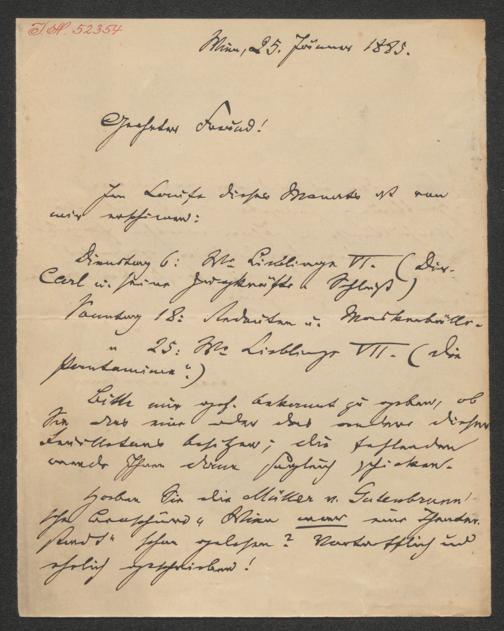 I.N. 52354
Wien, 25. Jänner 1885.
Geehrter Freund!
Im Laufe dieses Monats ist von
mir erschienen:
Dienstag 6: Wr Lieblinge VI. (Dir.
Carl u. seine Zugkräfte. Schluß)
Sonntag 18: Redouten u. Maskenbälle.
" 25: Wr Lieblinge VII. (Die
Pantomime.)
Bitte mir gef. bekannt zu geben, ob
Sie das eine oder das andere dieser
Feuilletons besitzen; die fehlenden
werde Ihnen dann sogleich schicken.
Haben Sie die Müller v. Guttenbrunn'
sche Broschüre „Wien war eine Theater
stadt" schon gelesen? Vortrefflich und
ehrlich geschrieben!